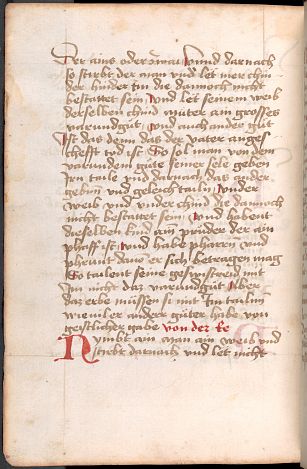 Der ains oder zwai Vnnd darnach
so stirbt der man vnd let mer chin-
der hinder im die dannoch nicht
bestattet sein vnd let seinem weib
derselben chind muter ain grosses
varundgut Vnd auch ander gut
Ist das denn das der vater an ges
chefft tod ist So sol man von dem
varunden gute seiner sele geben
Irn taile vnd darnach das ander
gebun vnd geleich tailn vnder
weib vnd vnder chind die dannoch
nicht bestattet sein vnd habent
dieselben kind ain pruder der ain
phaff ist vnd habe pharrn vnd
phrunt dauon er sich betragen mag
So talent seine geswistreid mit
Im nicht daz varundgut Aber
daz erbe müssen si mit Im tailnn
wieuil er ander güter habe von
geistlicher gabe von der ke
Nymbt ain man ain weib vnd
stirbt darnach vnd let nicht